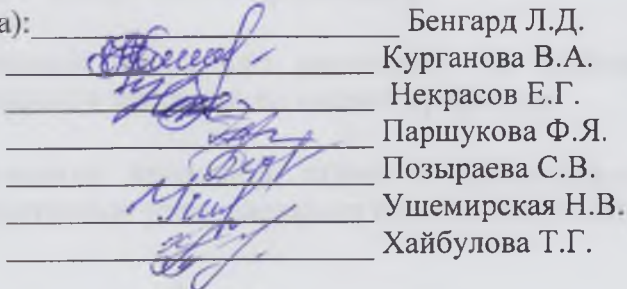 а): Бенгард Л.Д.
Курганова В.А.
Некрасов Е.Г.
Паршукова Ф.Я.
Позыраева С.В.
Ушемирская Н.В.
Хайбулова Т.Г.